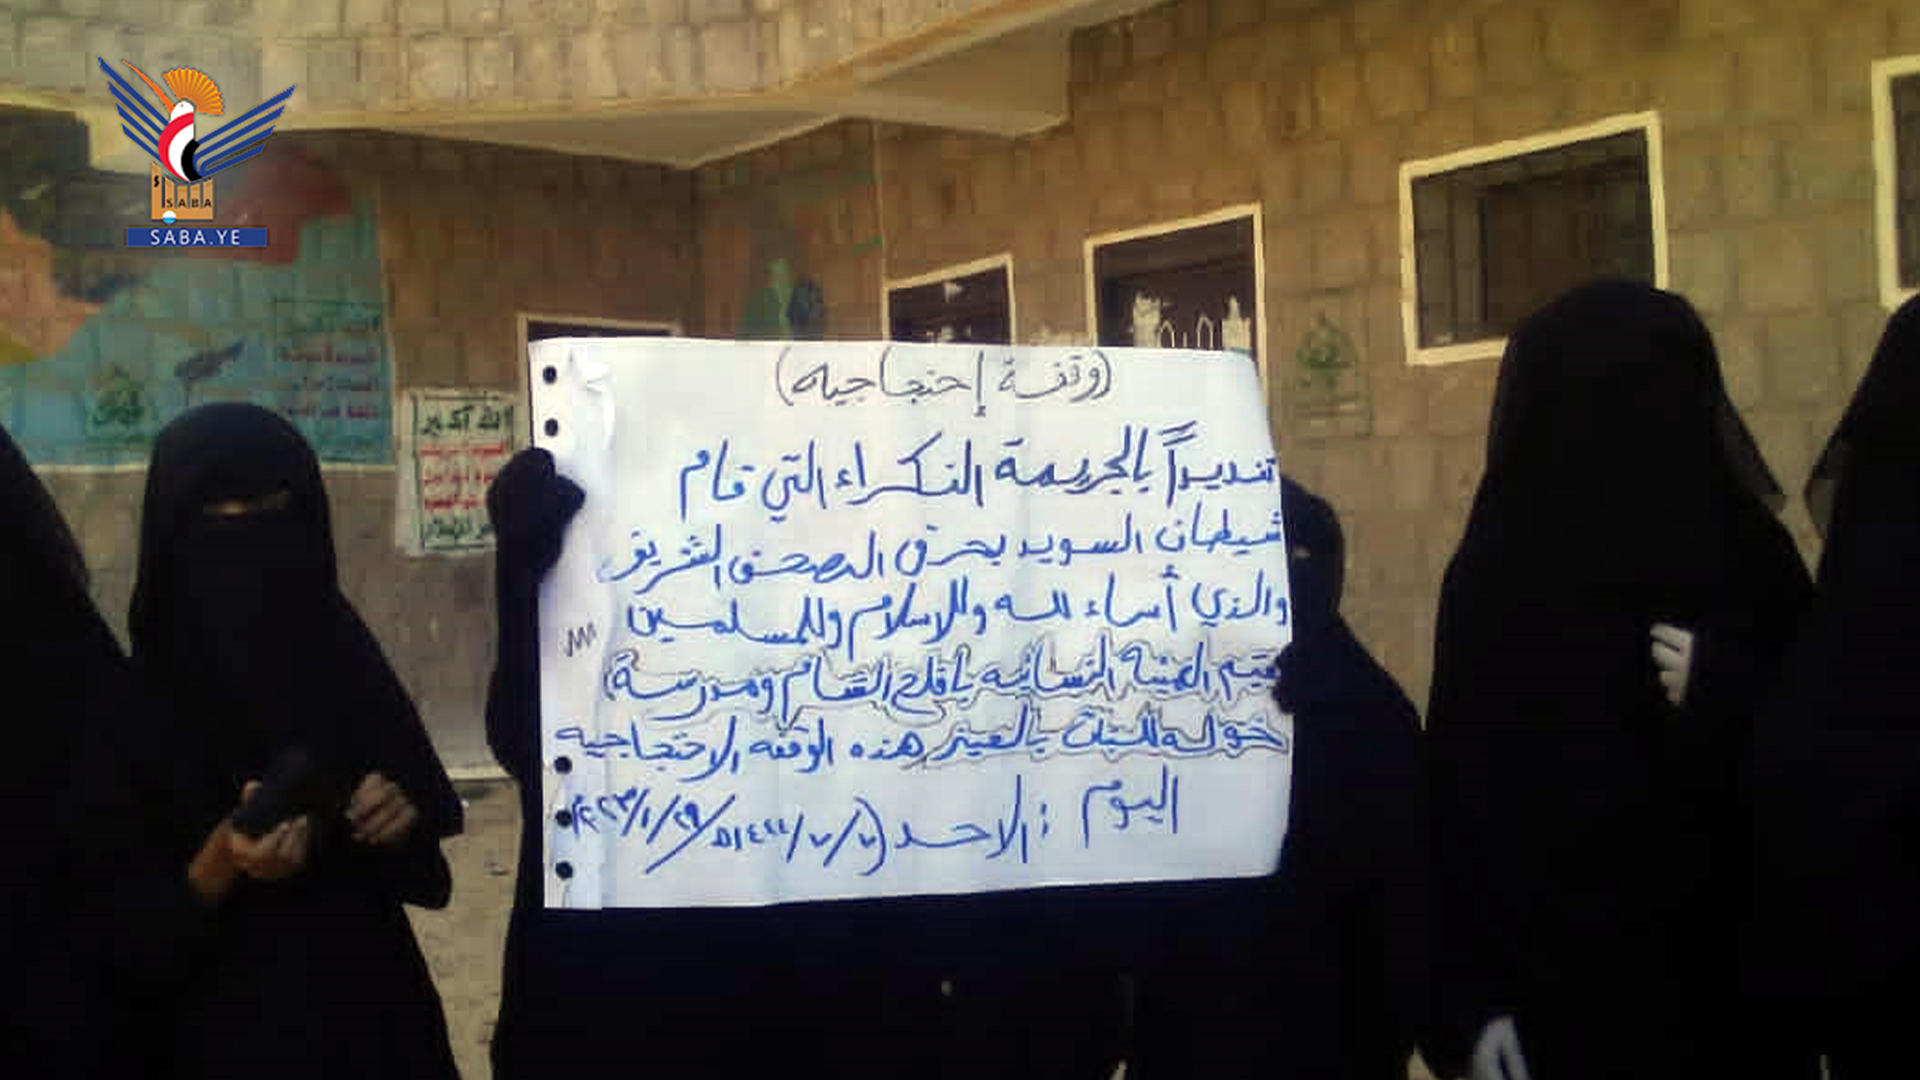 SABA
SABA.YE
الله أكبر
(وقفة إحتجاجيه)
تنديداً بالجريمة النكراء التي قام
شيطان السويد بحرق المصحف الشريف
والذي أساء لله وللاسلام وللمسلمين
تقيم الهيئة النسائيه بافلح الشام ومدرسة
خوله للبنات بالعينر هذه الوقفه الاحتجاجيه
اليوم : الاحد (٧/٧/١٤٤٤ه ٢٩/١/٢٠٢٣م